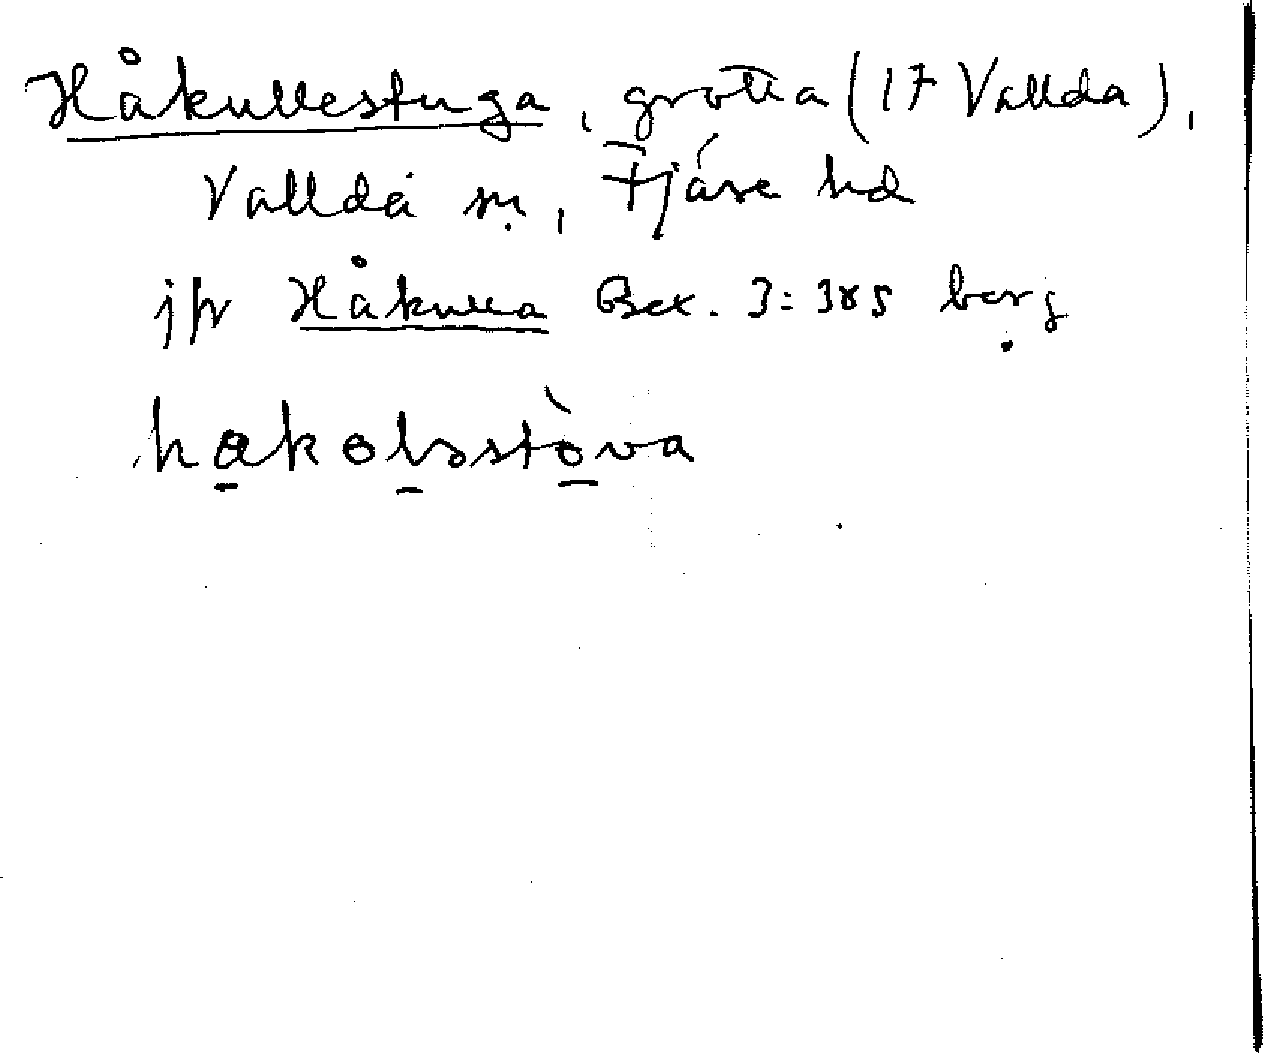 Håkullestuga, grotta (17 Vallda),
Vallda sn, Fjäre hd
jfr Håkulla Bex. 3:385 berg
hakolsstòva